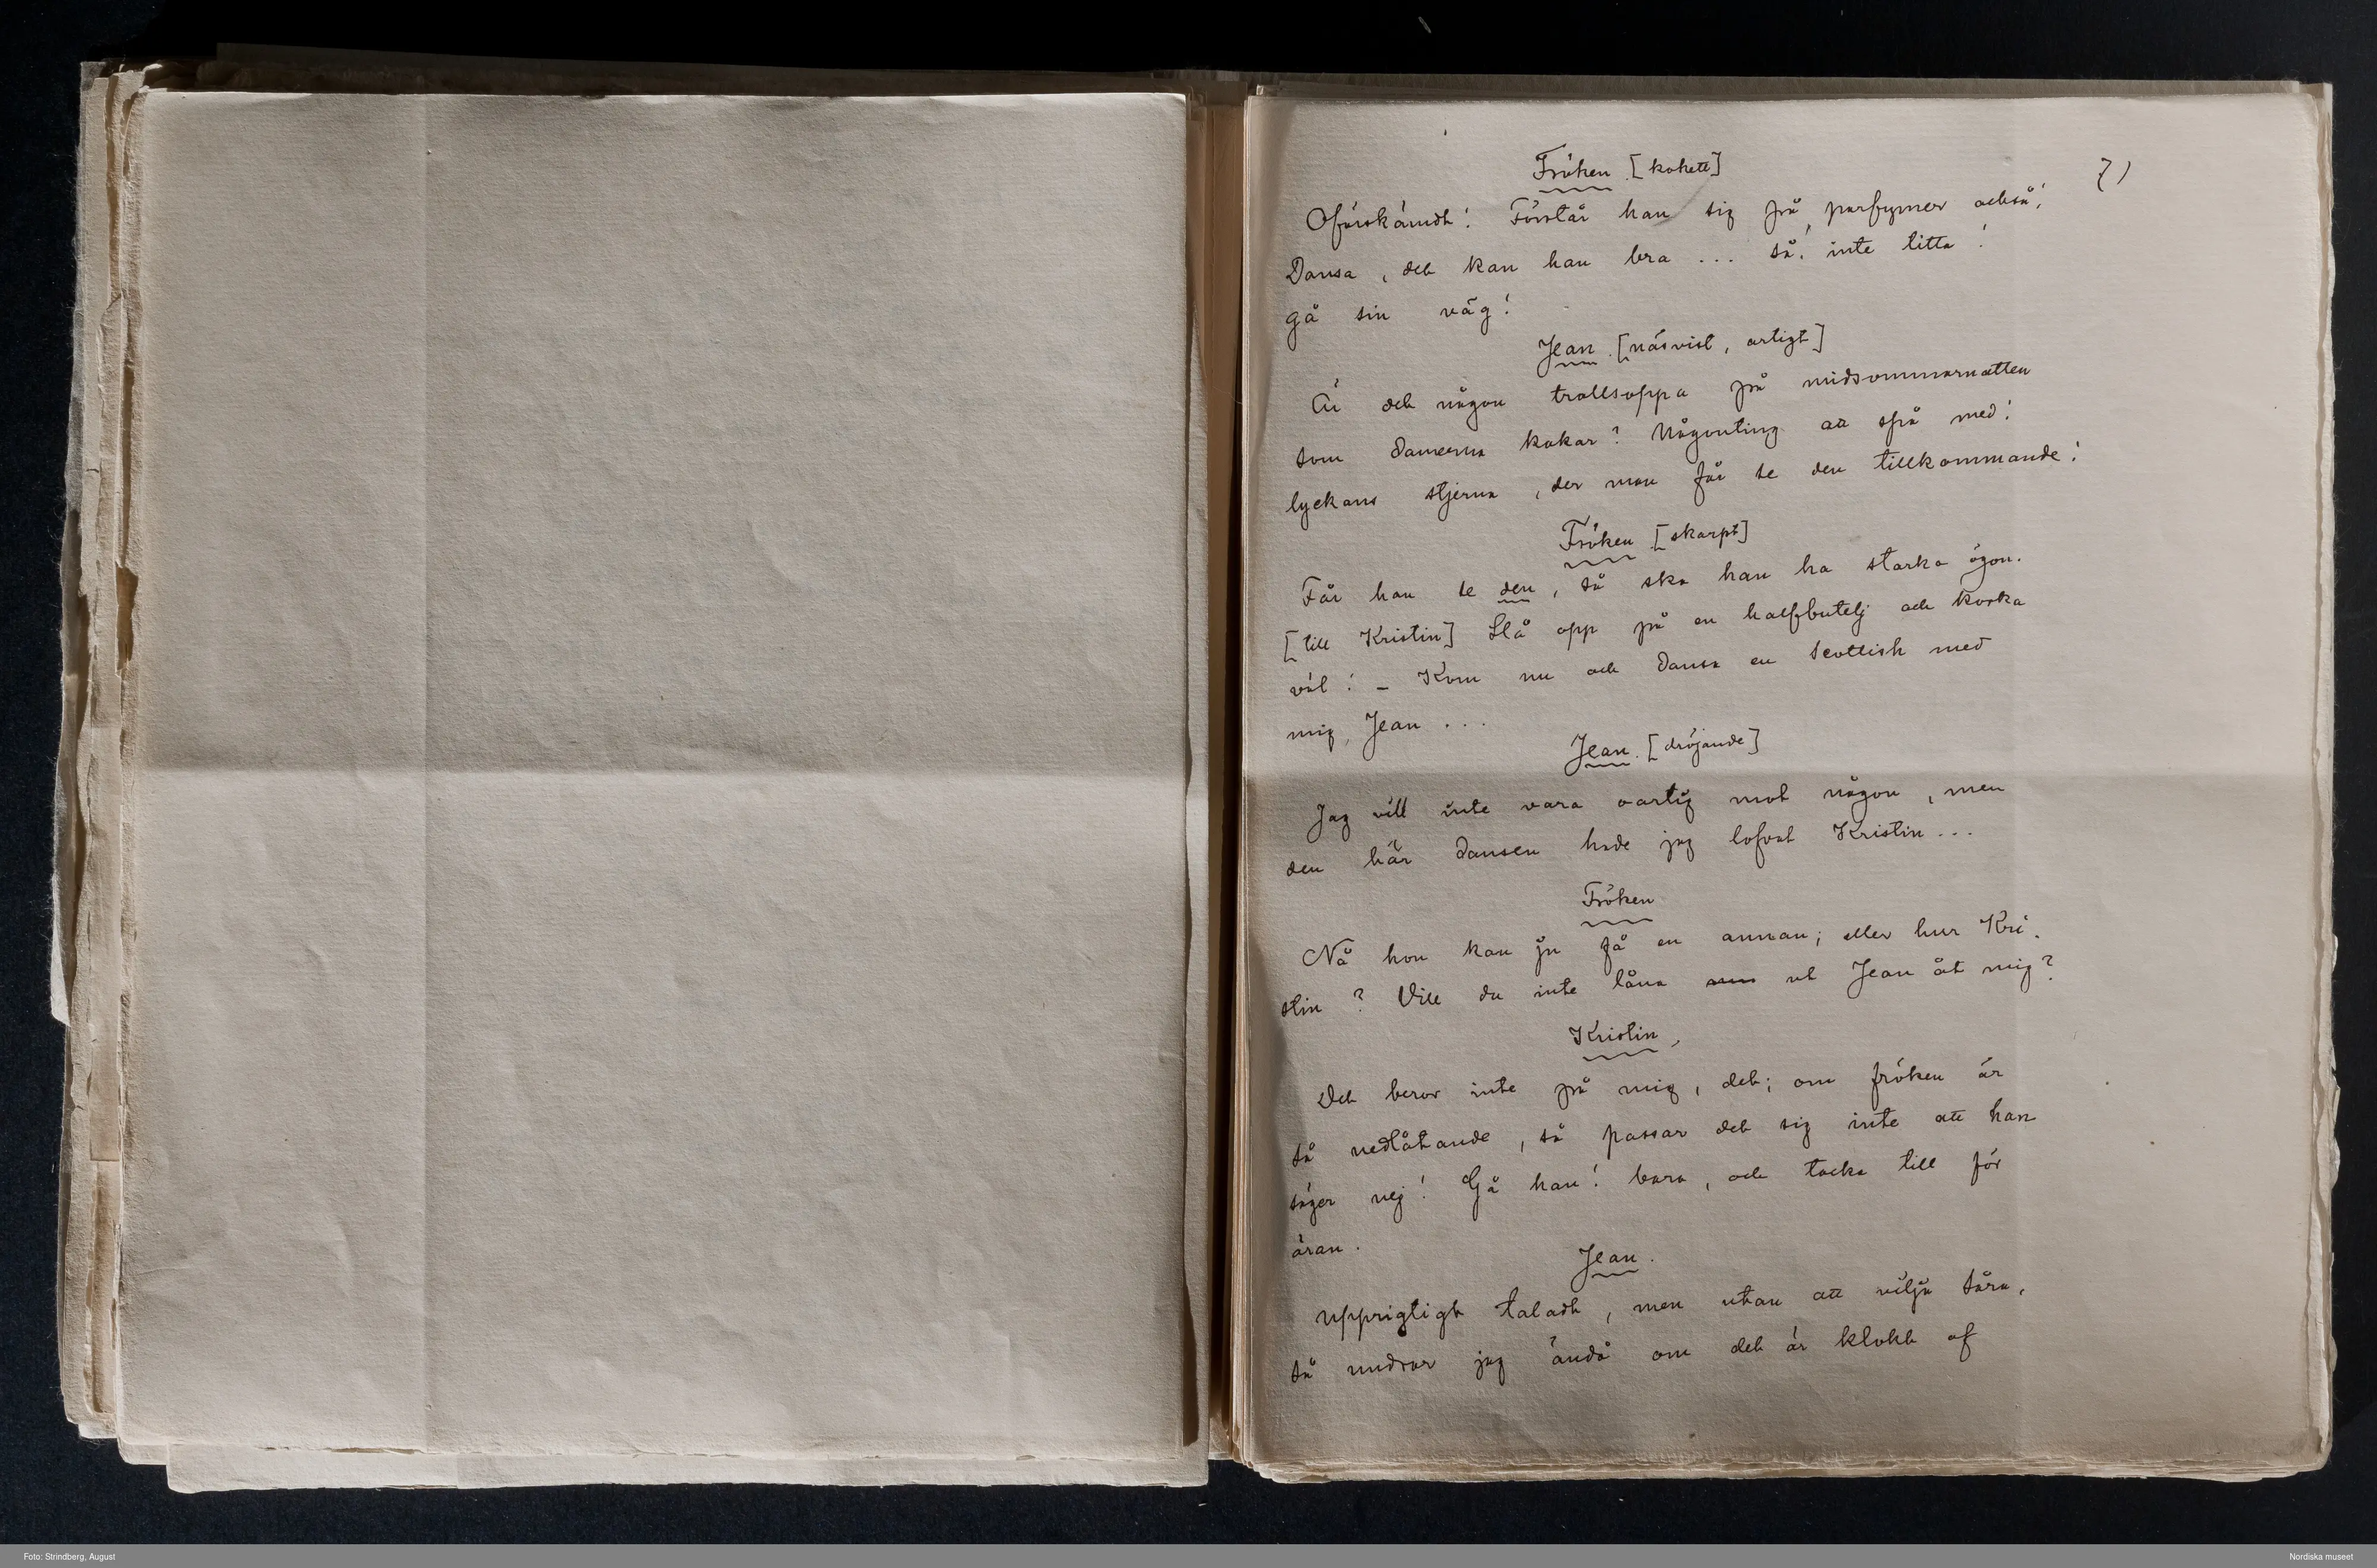 7)
Fröken [kokett]
Oförskämdt! Förstår han sig på parfymer också!
Dansa, det kan han bra ... så! inte titta!
gå sin väg!
Jean. [näsvist, artigt]
Är det någon trollsoppa på midsommarnatten
som damerna kokar? Någonting att spå med!
lyckans stjerna, der man får se den tillkommande!
Fröken [skarpt]
Får han se den, så ska han ha starka ögon.
[till Kristin] Slå opp på en halfbutelj och korka
väl! – Kom nu och dansa en scottish med
mig, Jean ...
Jean. [dröjande]
Jag vill inte vara oartig mot någon, men
den här dansen hade jag lofvat Kristin ...
Fröken
Nå hon kan ju få en annan; eller hur Kri-
stin? Vill du inte låna ut Jean åt mig?
Kristin,
Det beror inte på mig, det; om fröken är
så nedlåtande, så passar det sig inte att han
säger nej! Gå han! bara, och tacka till för
äran.
Jean.
Upprigtigt taladt, men utan att vilja såra,
så undrar jag ändå om det är klokt af
Foto: Strindberg, August
Nordiska museet